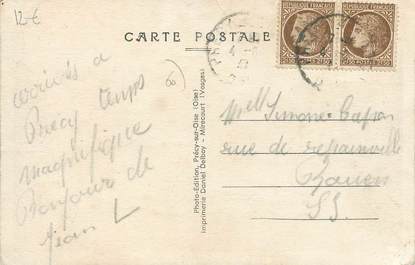 12€
CARTE POSTALE
REPUBLIQUE FRANÇAISE
REPUBLIQUE FRANÇAISE
2F50 POSTES 2F50
2F50 POSTES 2F50
arrivés à
Précy temps
magnifique
Bonjour de
Jean L
Photo-Edition, Précy-sur-Oise (Oise)
Imprimerie Daniel Delboy - Mirecourt (Vosges)
Mell Simone
rue de
Rouen